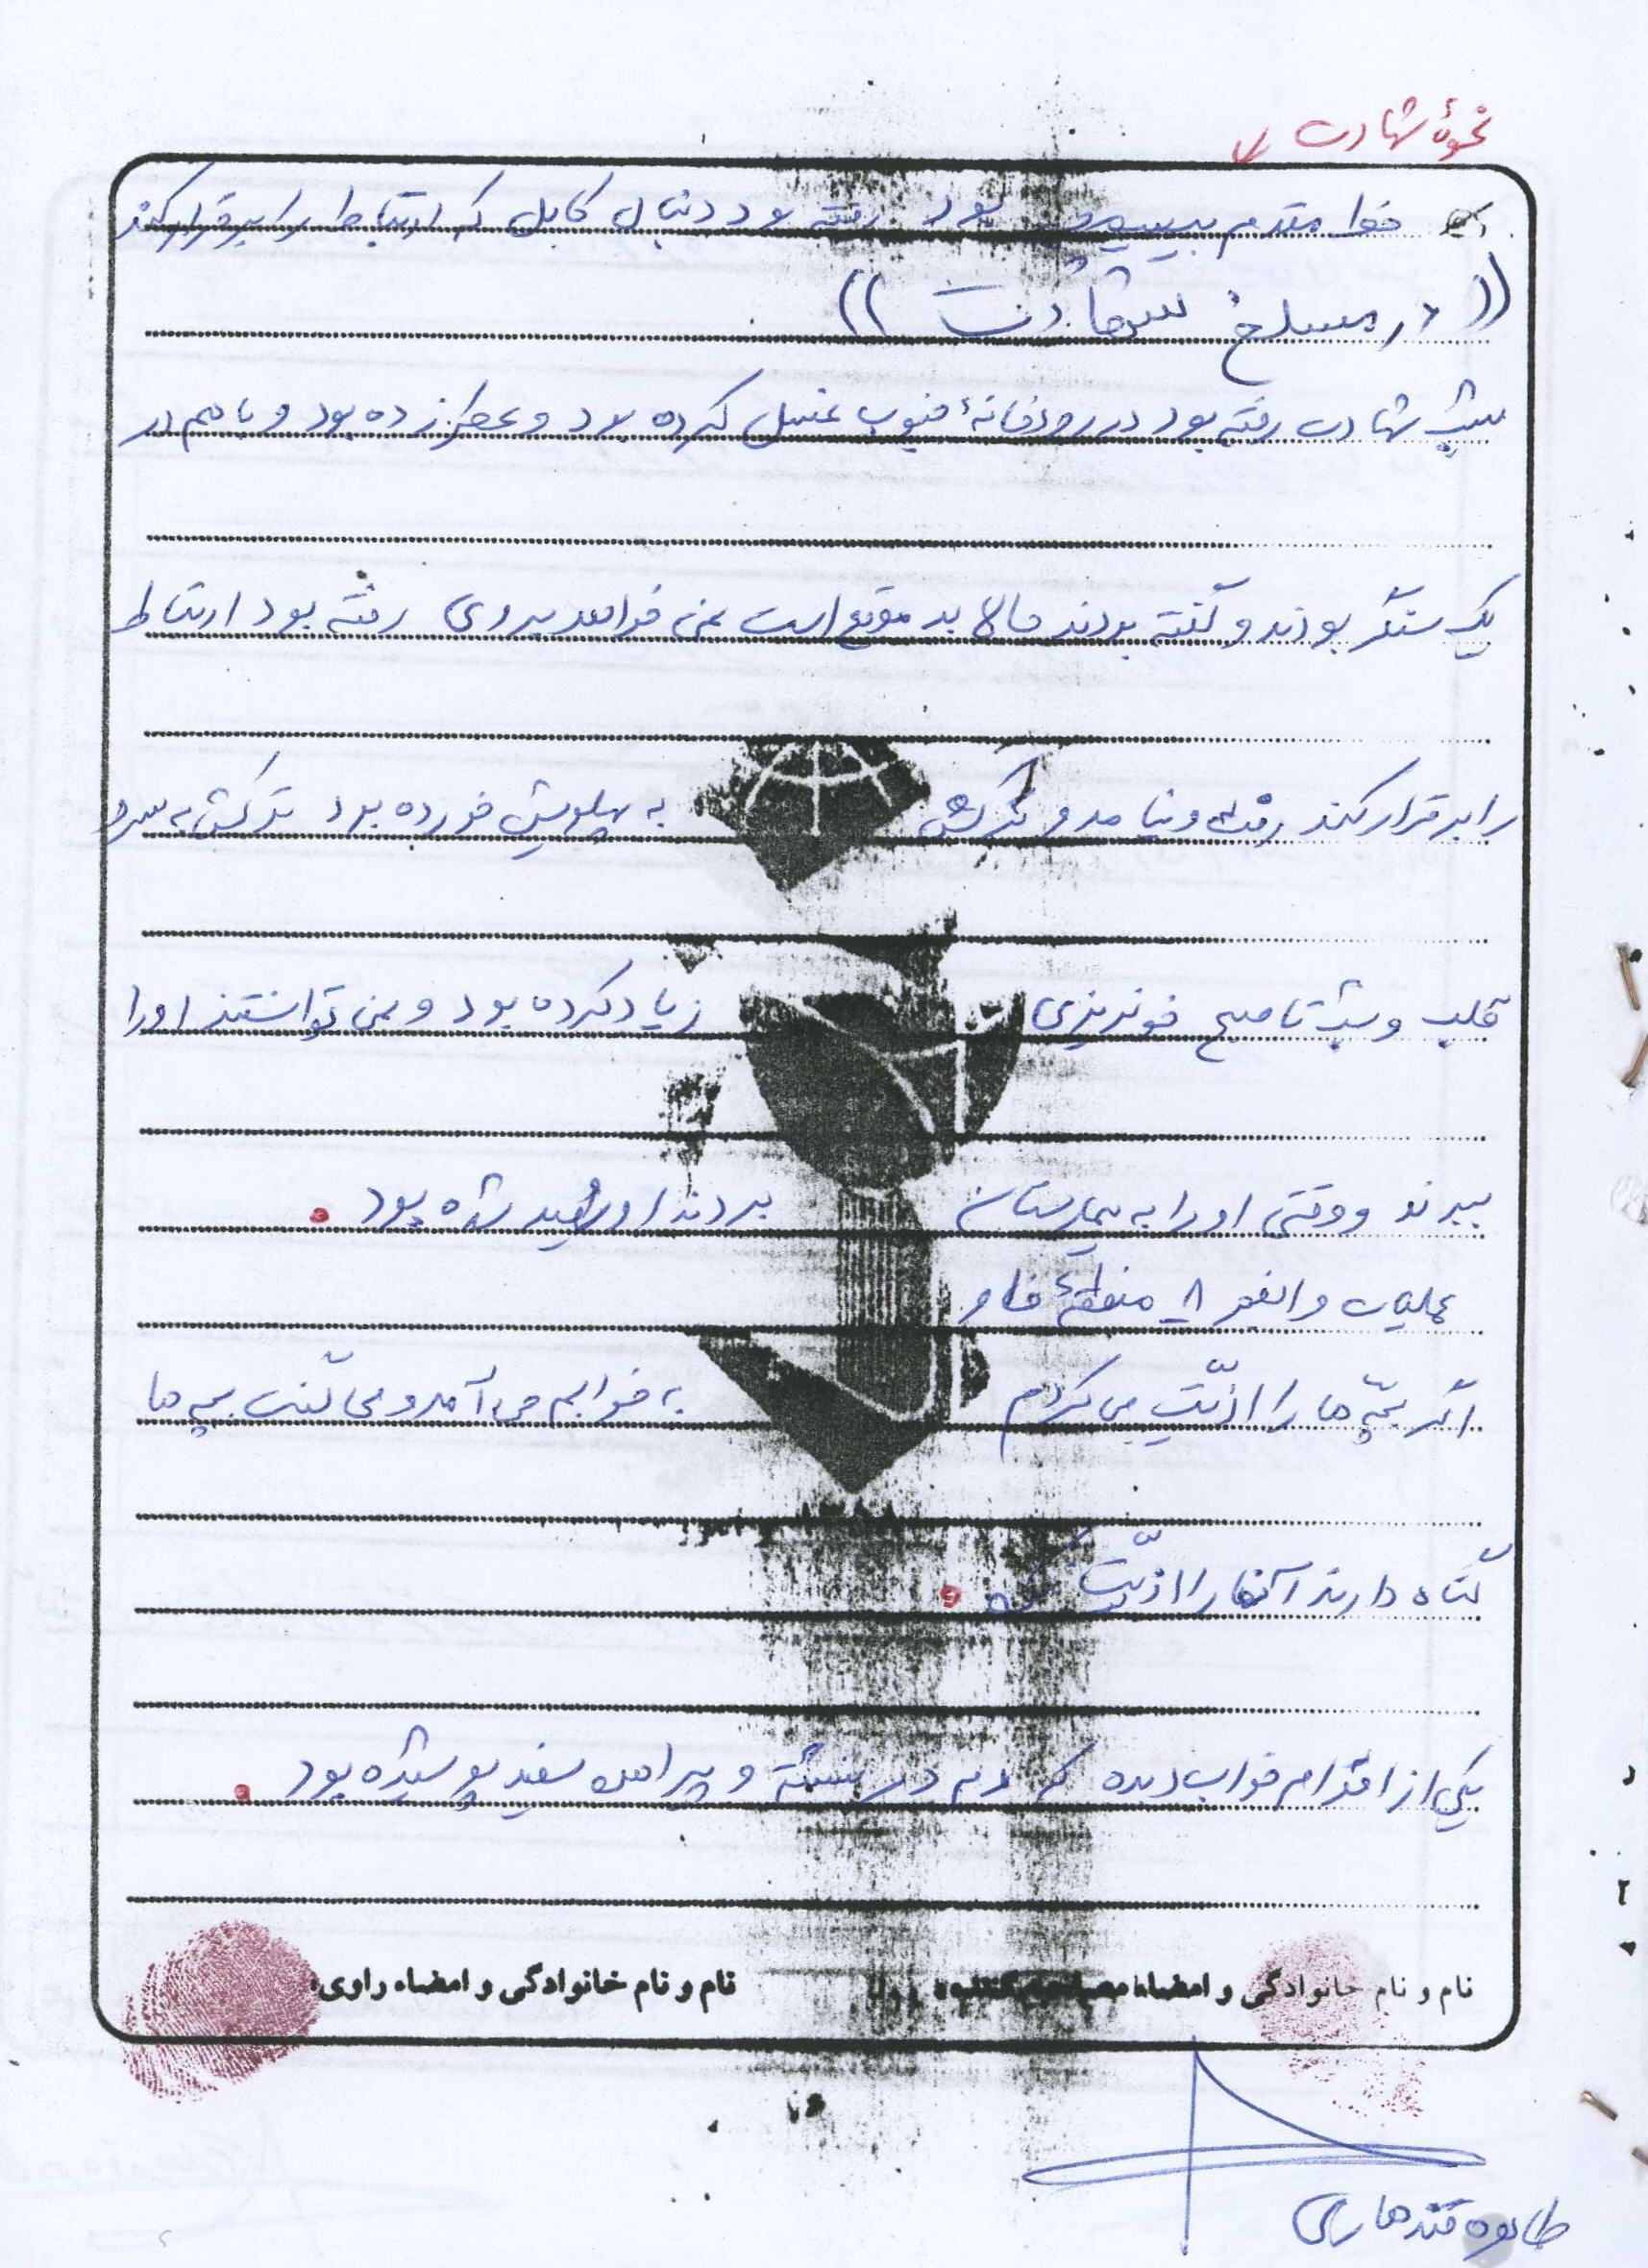 نحوهٔ شهادت
خط مقدم بیسیم‌چی بود رفته بود دنبال کابل که ارتباط را برقرار کند
((در مسلخ شهادت))
شب شهادت رفته بود در رودخانهٔ جنوب غسل کرده بود و عطر زده بود و با هم در
یک سنگر بودند و گفته بودند حالا بد موقع است نمی خواهد بروی رفته بود ارتباط
را برقرار کند رفت و نیامد و ترکش به پهلویش خورده بود ترکش به سر و
قلب و شب تا صبح خونریزی زیاد کرده بود و نمی توانستند او را
ببرند و وقتی او را به بیمارستان بردند او شهید شده بود .
عملیات والفجر ۸ منطقهٔ فاو
اگر بچّه ها را اذیّت می کردم به خوابم می آمد و می گفت بچه ها
گناه دارند آنها را اذیّت نکن .
یکی از اقوام خواب دیده که دم در نشسته و پیراهن سفید پوشیده بود .
نام و نام خانوادگی و امضاء مصاحبه کننده
نام و نام خانوادگی و امضاء راوی:
طاهره قندهاری